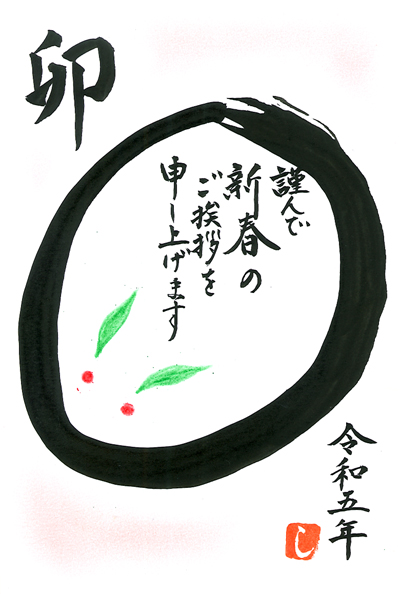 卯
謹んで
新春の
ご挨拶を
申し上げます
令和五年
し